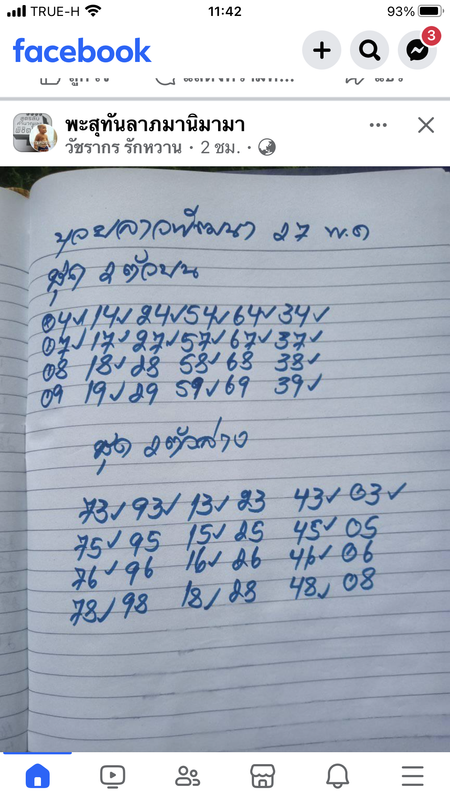 TRUE-H 11:42 93%
facebook 3
พะสุทันลาภมานิมามา
วัชรากร รักหวาน · 2 ชม. ·
หวยลาวพัฒนา 27 พ.ค
ชุด 2 ตัวบน
04✓ 14✓ 24✓ 54✓ 64✓ 34✓
07✓ 17✓ 27✓ 57✓ 67✓ 37✓
08 18✓ 28 58✓ 68 38✓
09 19✓ 29 59✓ 69 39✓
ชุด 2 ตัวล่าง
73✓ 93✓ 13✓ 23 43✓ 03✓
75✓ 95 15✓ 25 45✓ 05
76✓ 96 16✓ 26 46✓ 06
78✓ 98 18✓ 28 48✓ 08